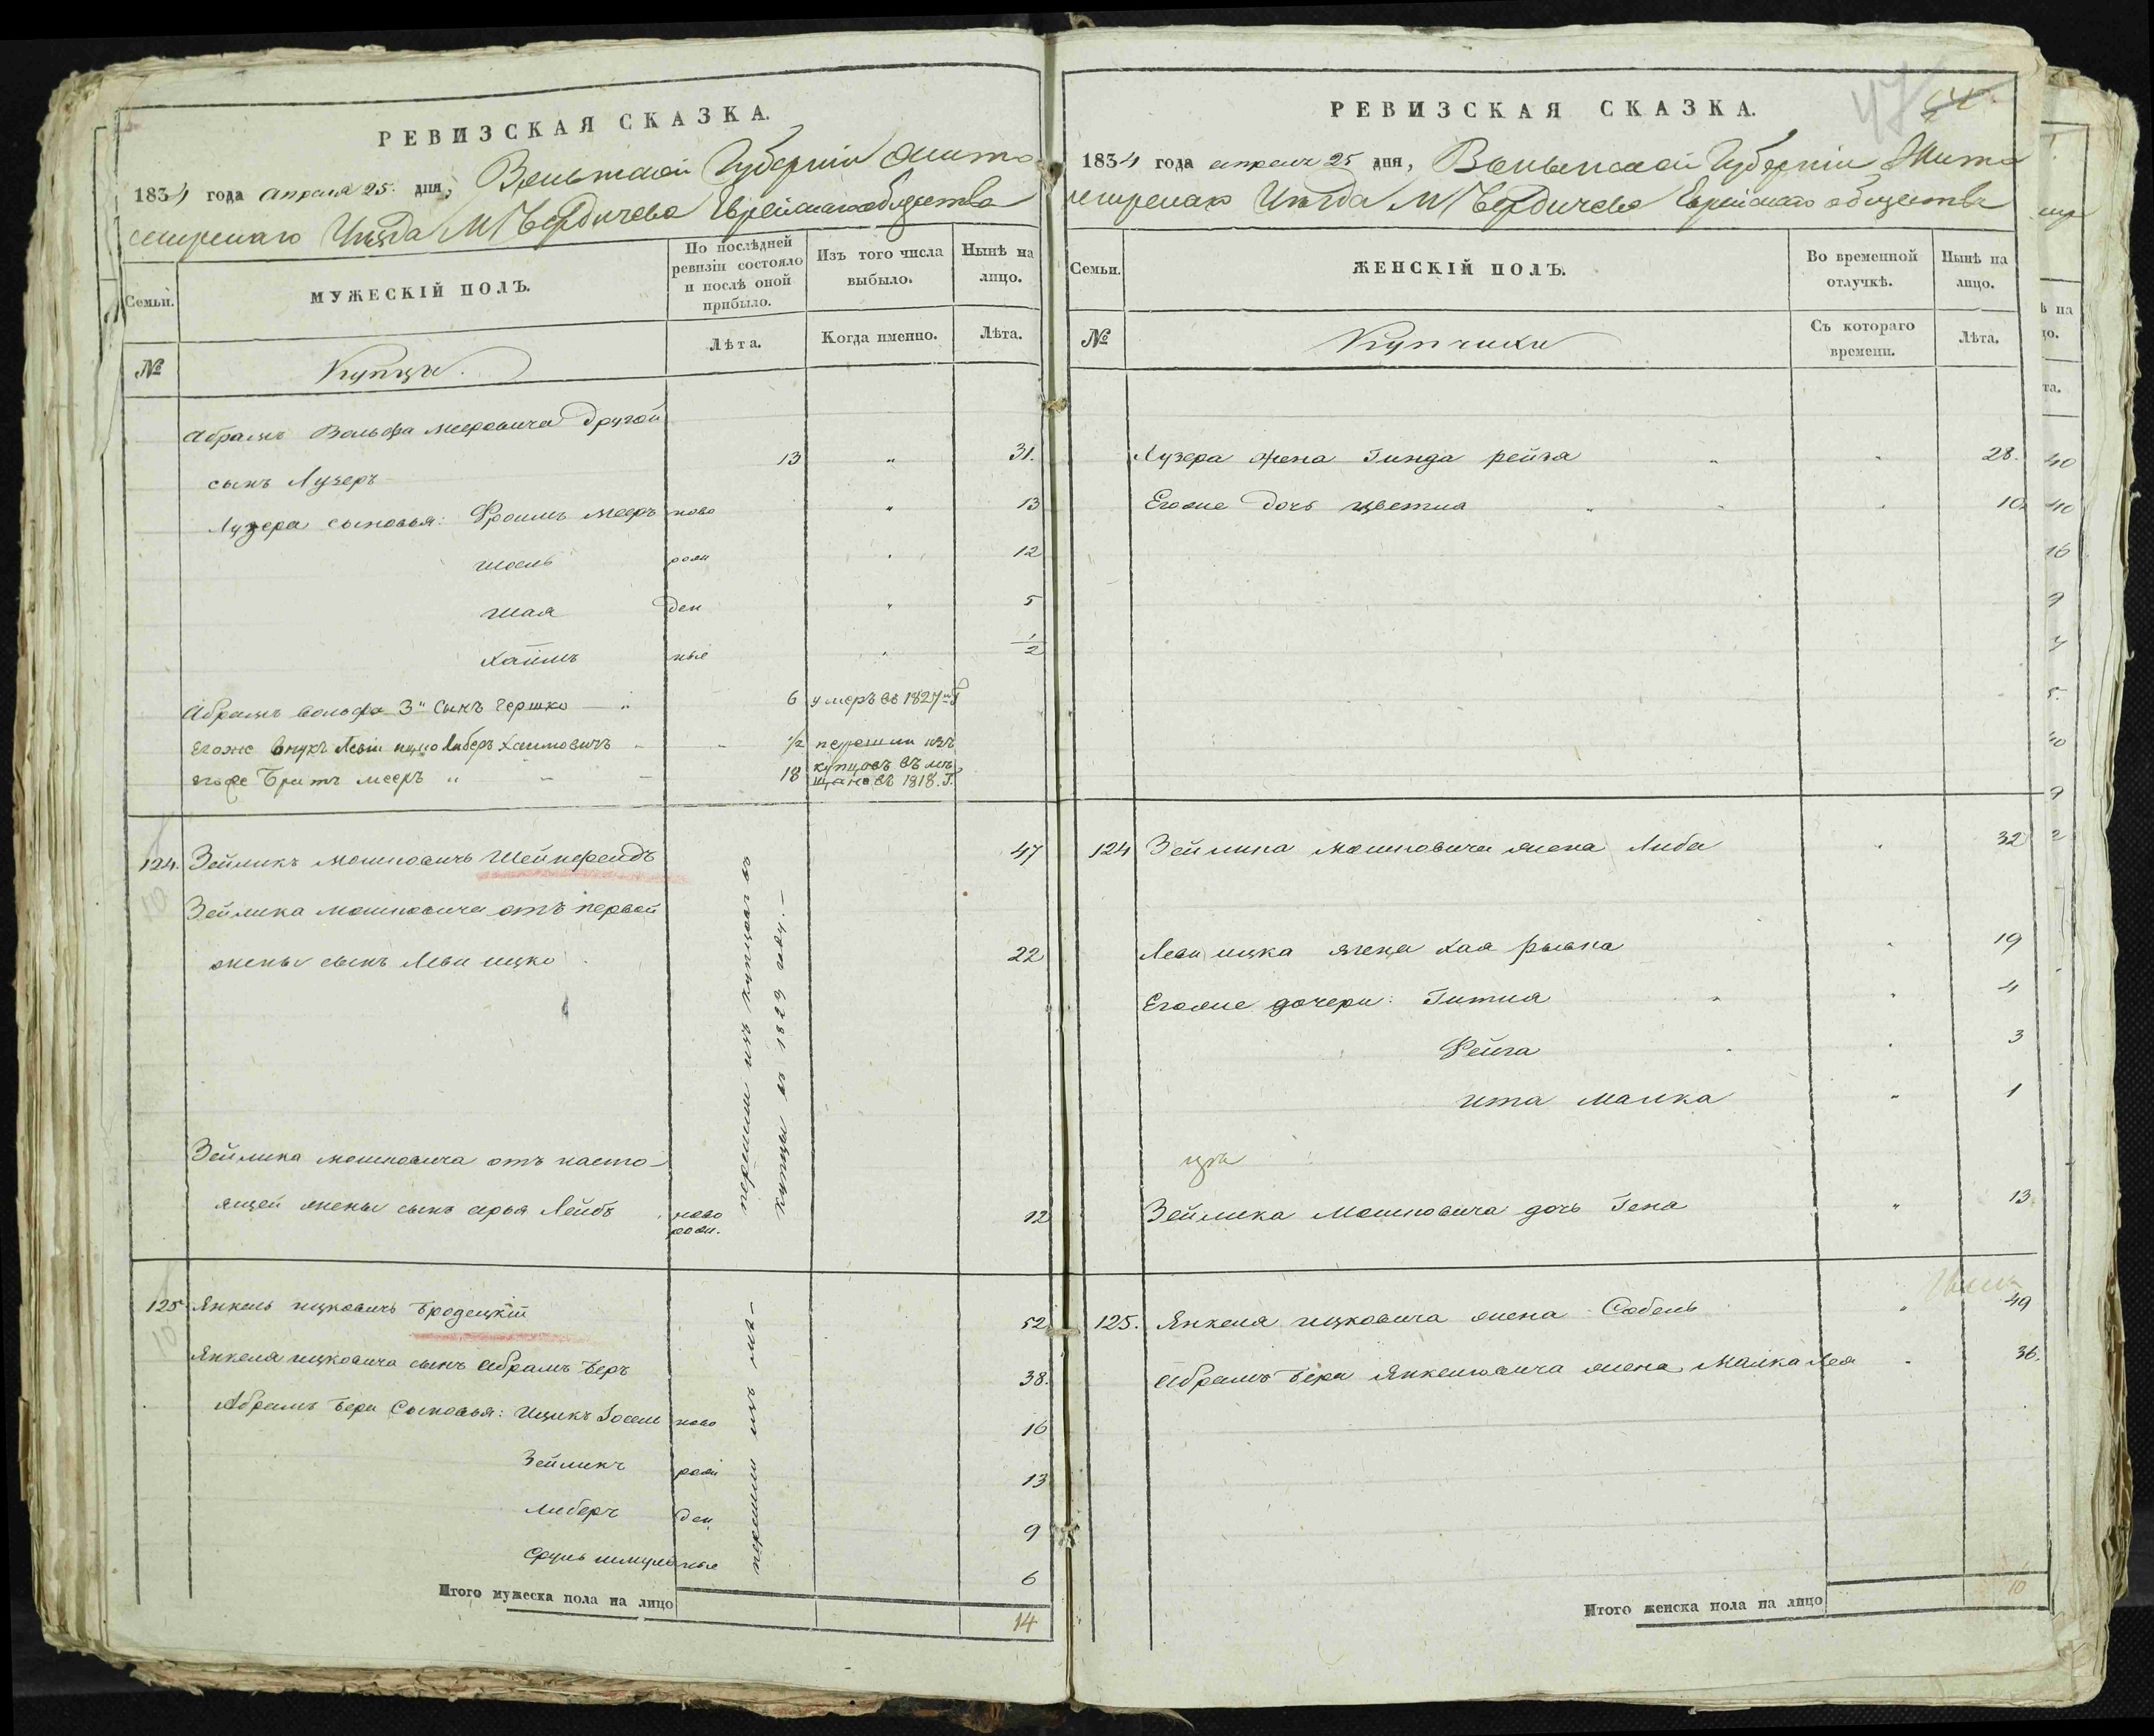 РЕВИЗСКАЯ СКАЗКА.
1834 года апреля 25 дня, Волынской Губернии Жито
мирскаго Уезда М Бердичева Еврейскаго общества
Семьи.
МУЖЕСКІЙ ПОЛЪ.
По послѣдней ревизіи состояло и послѣ оной прибыло.
Изъ того числа выбыло.
Нынѣ на лицо.
№
Купцы.
Лѣта.
Когда именно.
Лѣта.
Абрамъ Вольфа Мееровича другой
сынъ Лузеръ 13 " 31.
Лузера сыновья: Фроимъ Мееръ ново " 13
рож " 12
Шая ден " 5
Хаимъ ные " 1/2
Абрамъ Вольфа 3й Сынъ Гершко — " 6 умеръ въ 1827м Г
Егоже внукъ Леви ицко Либеръ Хаимовичъ " " 1/2 перешли изъ
Мееръ " — — 18 купцовъ въ мѣ
щане въ 1818. Г.
124. Зейликъ Мошковичъ Шейнфелдъ 47
Зейлика Мошковича отъ первой
жены сынъ Леви ицко 22
Зейлика Мошковича отъ насто-
ящей жены сынъ Арья Лейбъ ново рож. 12
перешли изъ купцовъ въ
купцы въ 1829 году. —
125 Янкель ицковичъ Бродецкій 52
10
Янкеля ицковича сынъ Абрамъ Беръ 38.
Абрамъ Бера Сыновья: Ицикъ Іосель ново 16
Зейликъ рож 13
Либеръ ден 9
Сруль Шмуль ные 6
перешли изъ мѣ—
Итого мужеска пола на лицо 14
РЕВИЗСКАЯ СКАЗКА.
47
1834 года апреля 25 дня, Волынской Губерніи Жито
мирскаго Уезда М Бердичева Еврейскаго общества
Семьи.
ЖЕНСКІЙ ПОЛЪ.
Во временной отлучкѣ.
Нынѣ на лицо.
№
Купчихи
Съ котораго времени.
Лѣта.
Лузера жена Гинда рейза " " 28.
Егоже дочь Цветля " " 10
124 Зейлика Мошковича жена Либа " 32
Леви ицка жена Хая рывка " 19
Егоже дочери: Гитля " " 4
Фейга " " 3
ита Малка " 1
Зейлика Мошковича дочь Гена " 13
125. Янкеля ицковича жена Собель " 49
Абрамъ Бера Янкелевича жена Малка Лея " 36.
Итого женска пола на лицо 10